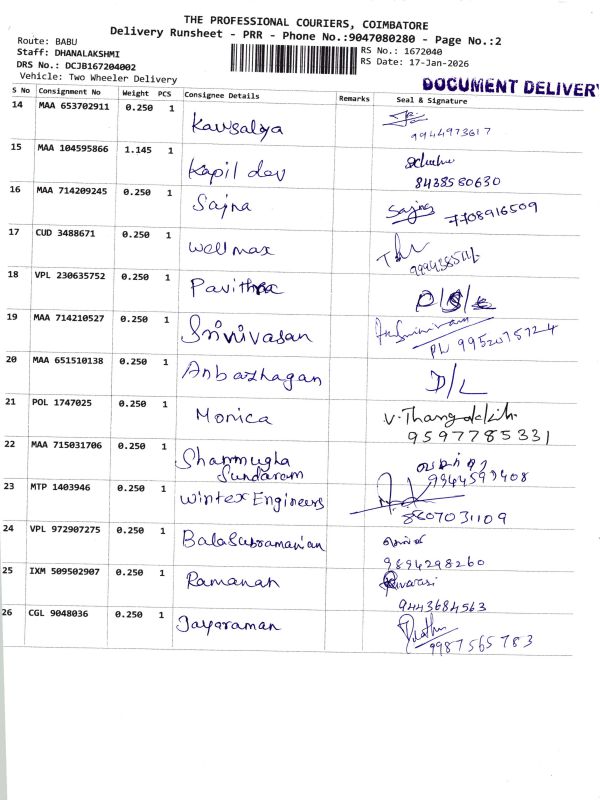 THE PROFESSIONAL COURIERS, COIMBATORE
Delivery Runsheet - PRR - Phone No.:9047080280 - Page No.:2
Route: BABU
Staff: DHANALAKSHMI
DRS No.: DCJB167204002
Vehicle: Two Wheeler Delivery
RS No.: 1672040
RS Date: 17-Jan-2026
DOCUMENT DELIVERY
S No Consignment No Weight PCS Consignee Details Remarks Seal & Signature
14 MAA 653702911 0.250 1 Kausalya
9944973617
15 MAA 104595866 1.145 1 Kapil dev
8438580630
16 MAA 714209245 0.250 1 Sajna
7708916509
17 CUD 3488671 0.250 1 Wellmax
18 VPL 230635752 0.250 1 Pavithra
19 MAA 714210527 0.250 1 Srinivasan
PH 9952075724
20 MAA 651510138 0.250 1 Anbazhagan D/L
21 POL 1747025 0.250 1 Monica
9597785331
22 MAA 715031706 0.250 1 Shanmugha
Sundaram
9344593408
23 MTP 1403946 0.250 1 Wintex Engineers
8807031109
24 VPL 972907275 0.250 1 BalaSubramanian
9894298260
25 IXM 509502907 0.250 1 Ramanan
9443684563
26 CGL 9048036 0.250 1 Jayaraman
9987565783